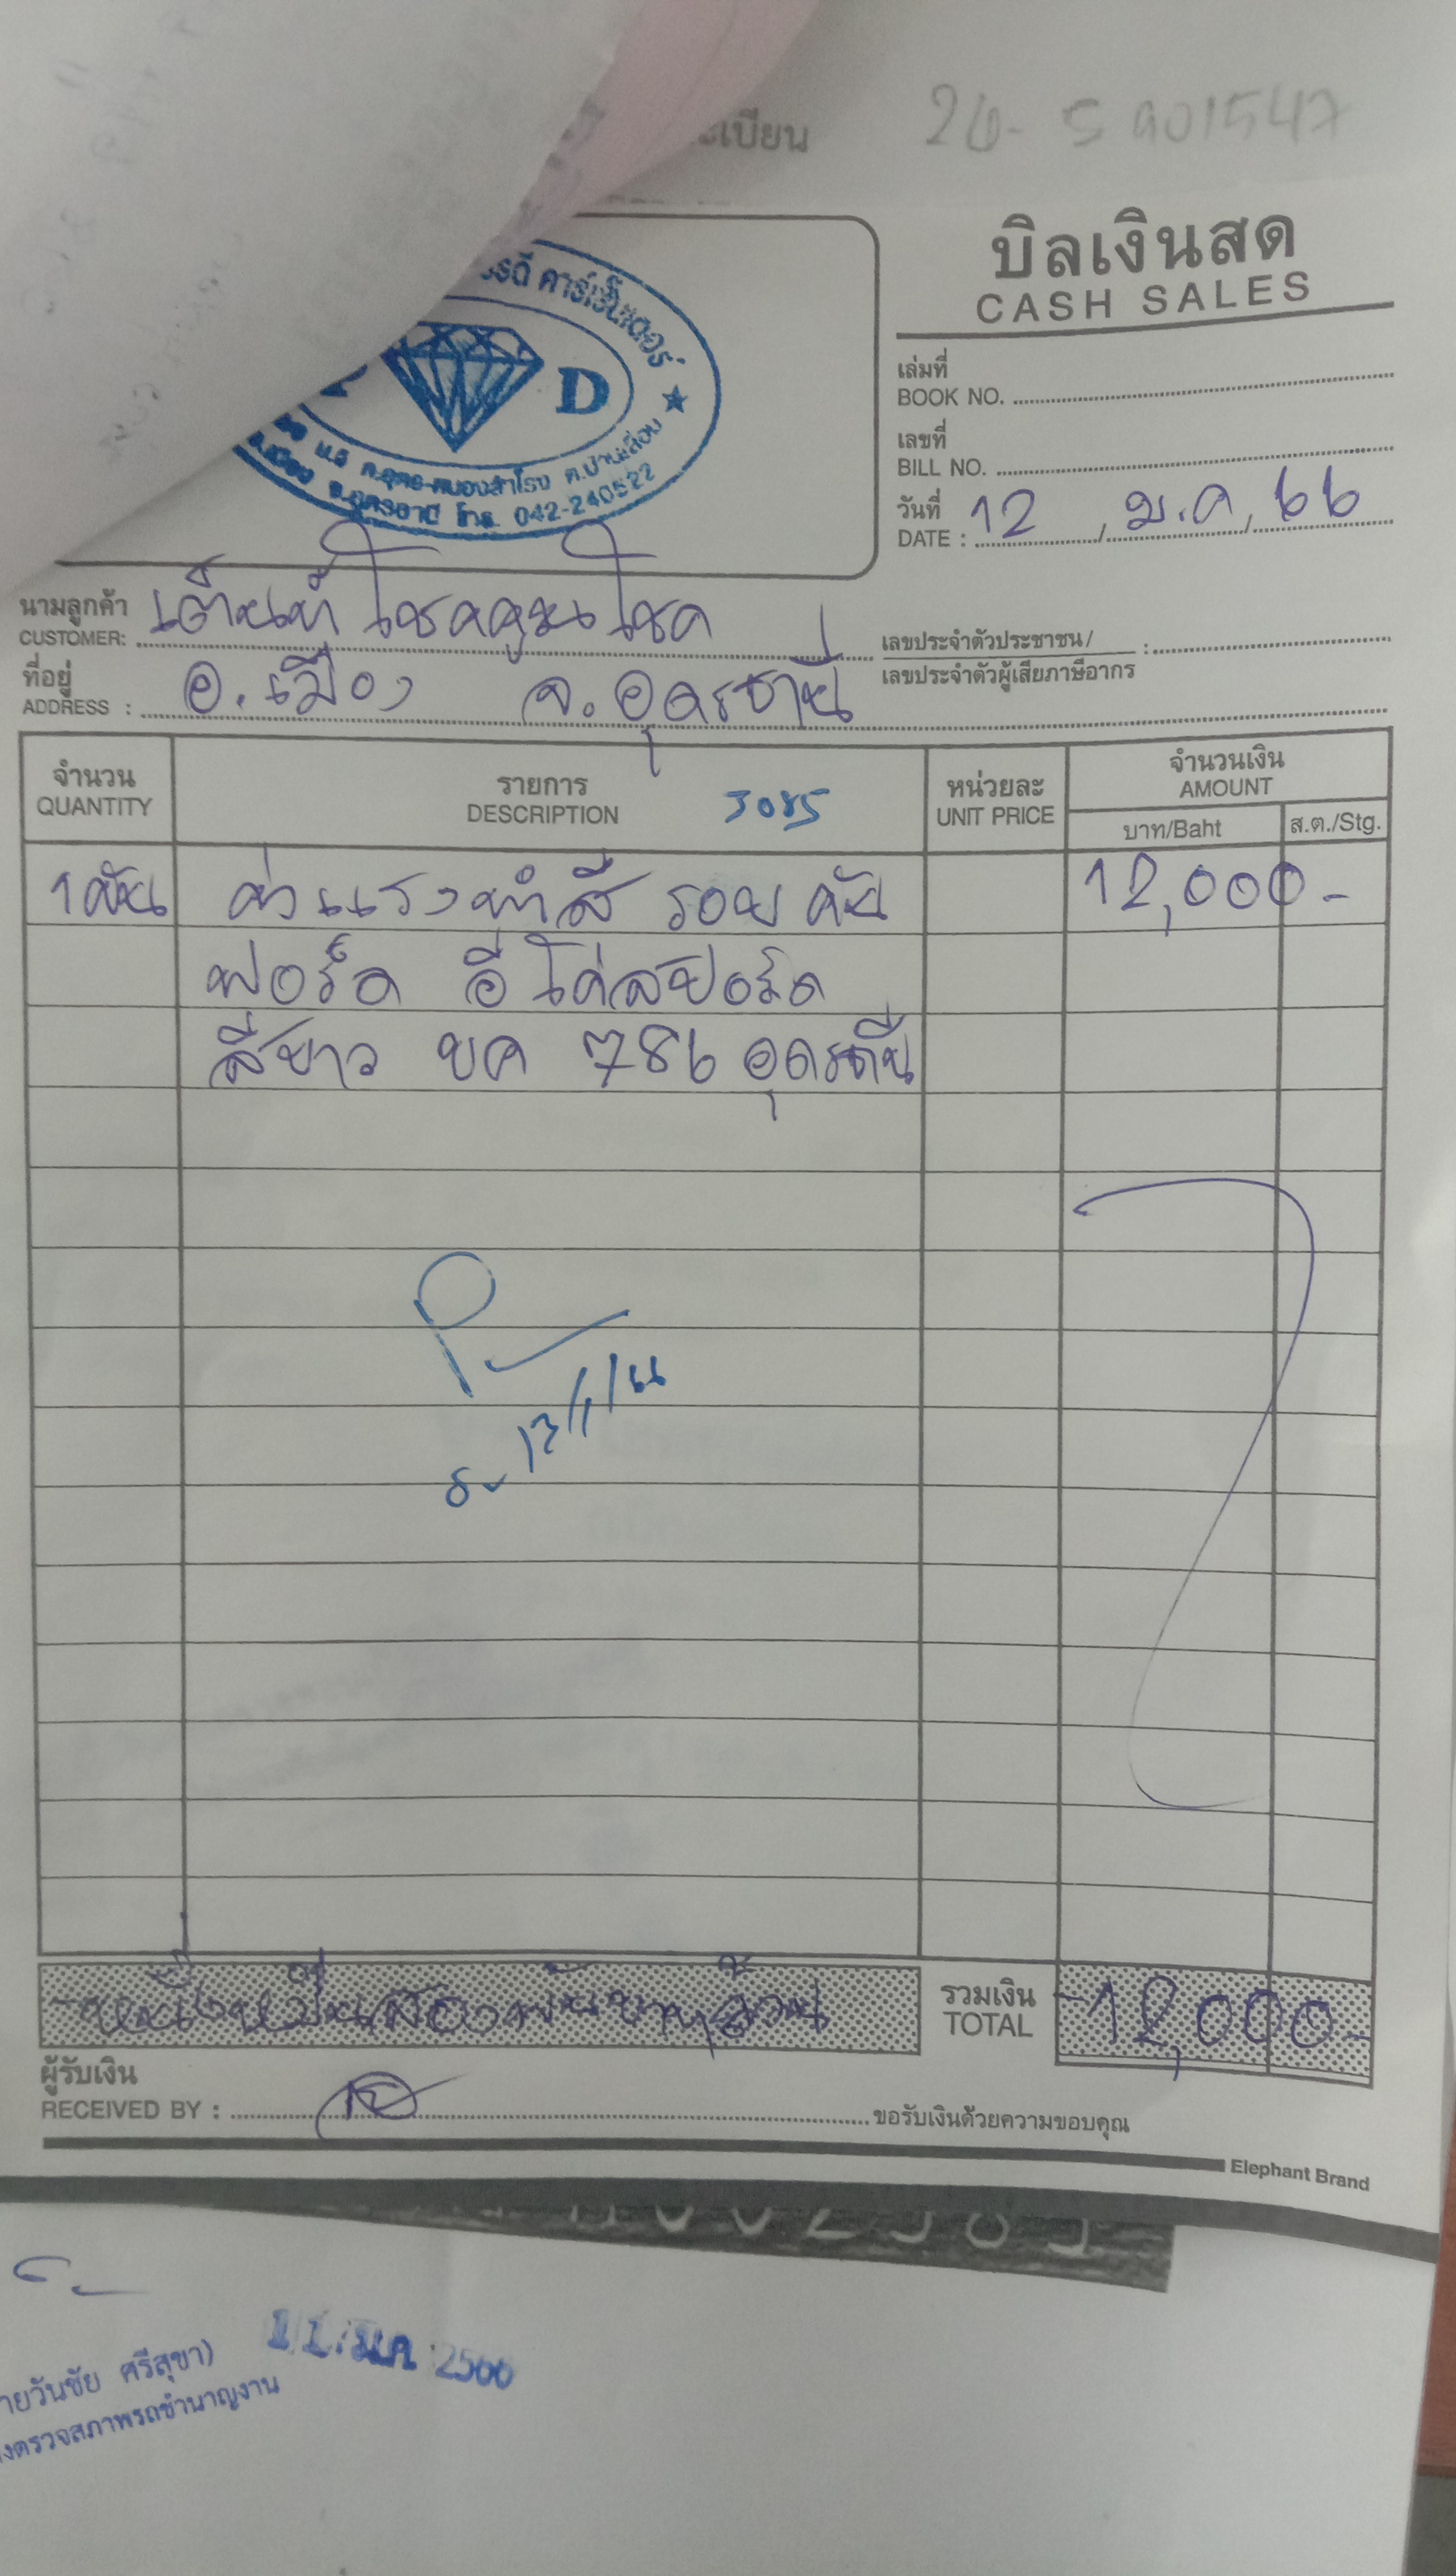 ะเบียน
บิลเงินสด
CASH SALES
รรดี คาร์เซ็นเตอร์ ★
D
ม.5 ถ.อุดร-หนองสำโรง ต.บ้านเลื่อม
อ.เมือง จ.อุดรธานี โทร. 042-240522
เล่มที่
BOOK NO.
เลขที่
BILL NO.
วันที่
DATE : 12 / ม.ค / 66
นามลูกค้า
CUSTOMER: เต็นท์ โชคคูนโชค
เลขประจำตัวประชาชน/ :
เลขประจำตัวผู้เสียภาษีอากร
ที่อยู่
ADDRESS : อ.เมือง จ.อุดรธานี
จำนวน
QUANTITY
รายการ
DESCRIPTION
หน่วยละ
UNIT PRICE
จำนวนเงิน
AMOUNT
บาท/Baht ส.ต./Stg.
1 คัน ค่าแรงทำสี รอบคัน 12,000-
ฟอร์ด อีโค่สปอร์ต
สีขาว ขค 786 อุดรธานี
13/1/66
-หนึ่งหมื่นสองพันบาทถ้วน
รวมเงิน
TOTAL
-12,000-
ผู้รับเงิน
RECEIVED BY :
ขอรับเงินด้วยความขอบคุณ
Elephant Brand
ายวันชัย ศรีสุขา)
งตรวจสภาพรถชำนาญงาน
ม.ค. 2566